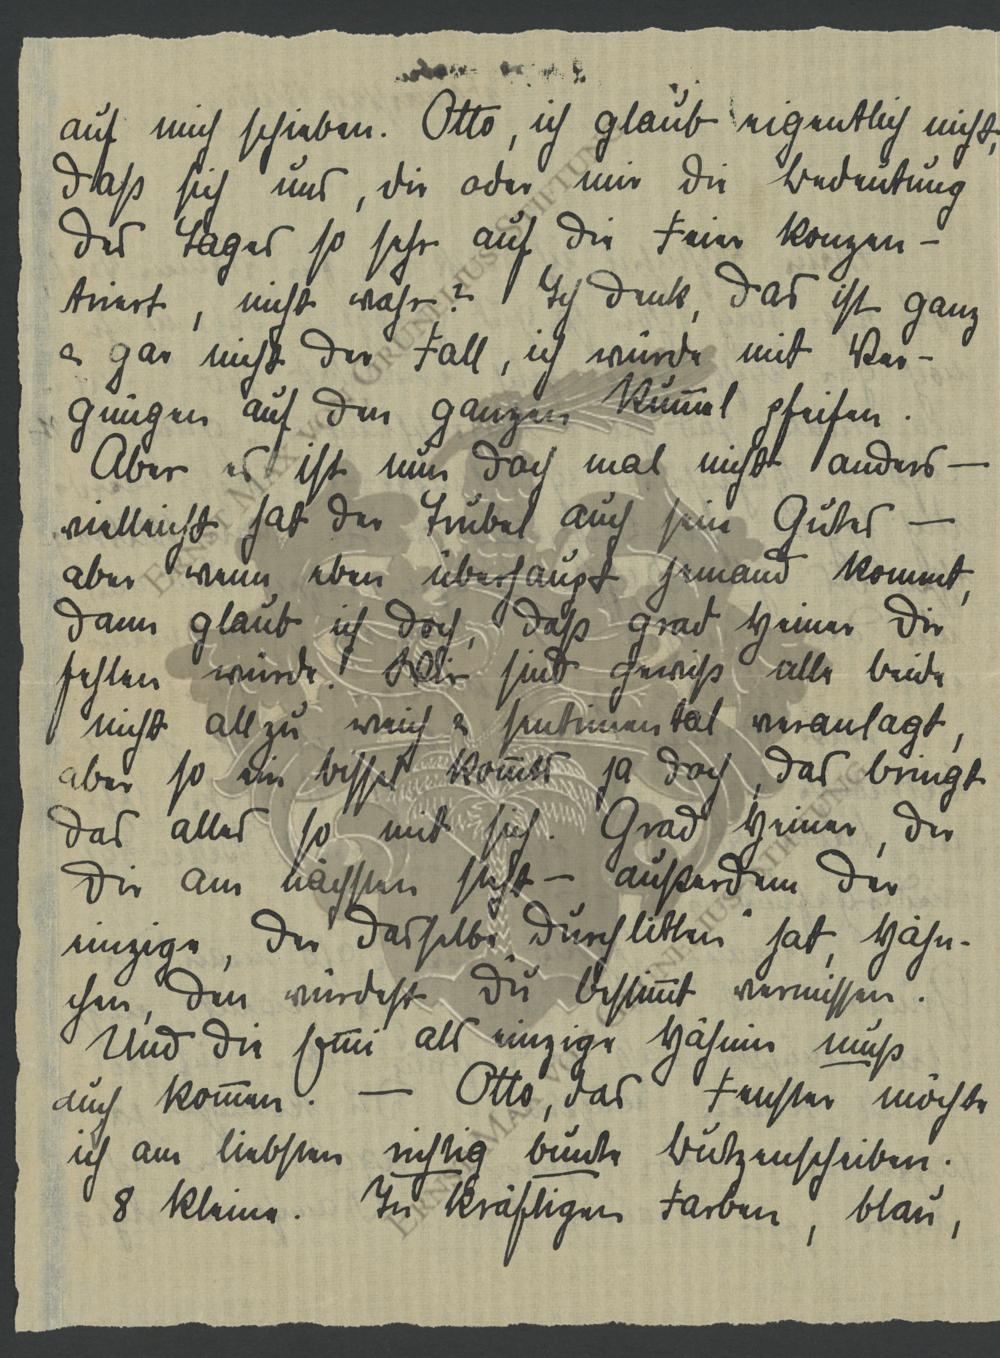 auf mich schieben. Otto, ich glaub eigentlich nicht,
daß sich uns, dir oder mir die Bedeutung
des Tages so sehr auf die Feier konzen-
triert, nicht wahr? Ich denk, das ist ganz
& gar nicht der Fall, ich würde mit Ver-
gnügen auf den ganzen Kum̅el pfeifen.
Aber es ist nun doch mal nicht anders —
vielleicht hat der Trubel auch sein Gutes —
aber wenn eben überhaupt jemand kommt,
dann glaub ich doch, daß grad Heiner Dir
fehlen würde. Wir sind gewiß alle beide
nicht allzu weich & sentimental veranlagt,
aber so ein bissel kom̅ts ja doch, das bringt
das alles so mit sich. Grad Heiner, der
Dir am nächsten steht — außerdem der
einzige, der dasselbe "durchlitten" hat, Hähn-
chen, den würdest Du bestim̅t vermissen.
Und die als einzige Hähnin muß
auch kom̅en. — Otto, das Fenster möchte
ich am liebsten richtig bunte Butzenscheiben.
8 kleine. In kräftigen Farben, blau,